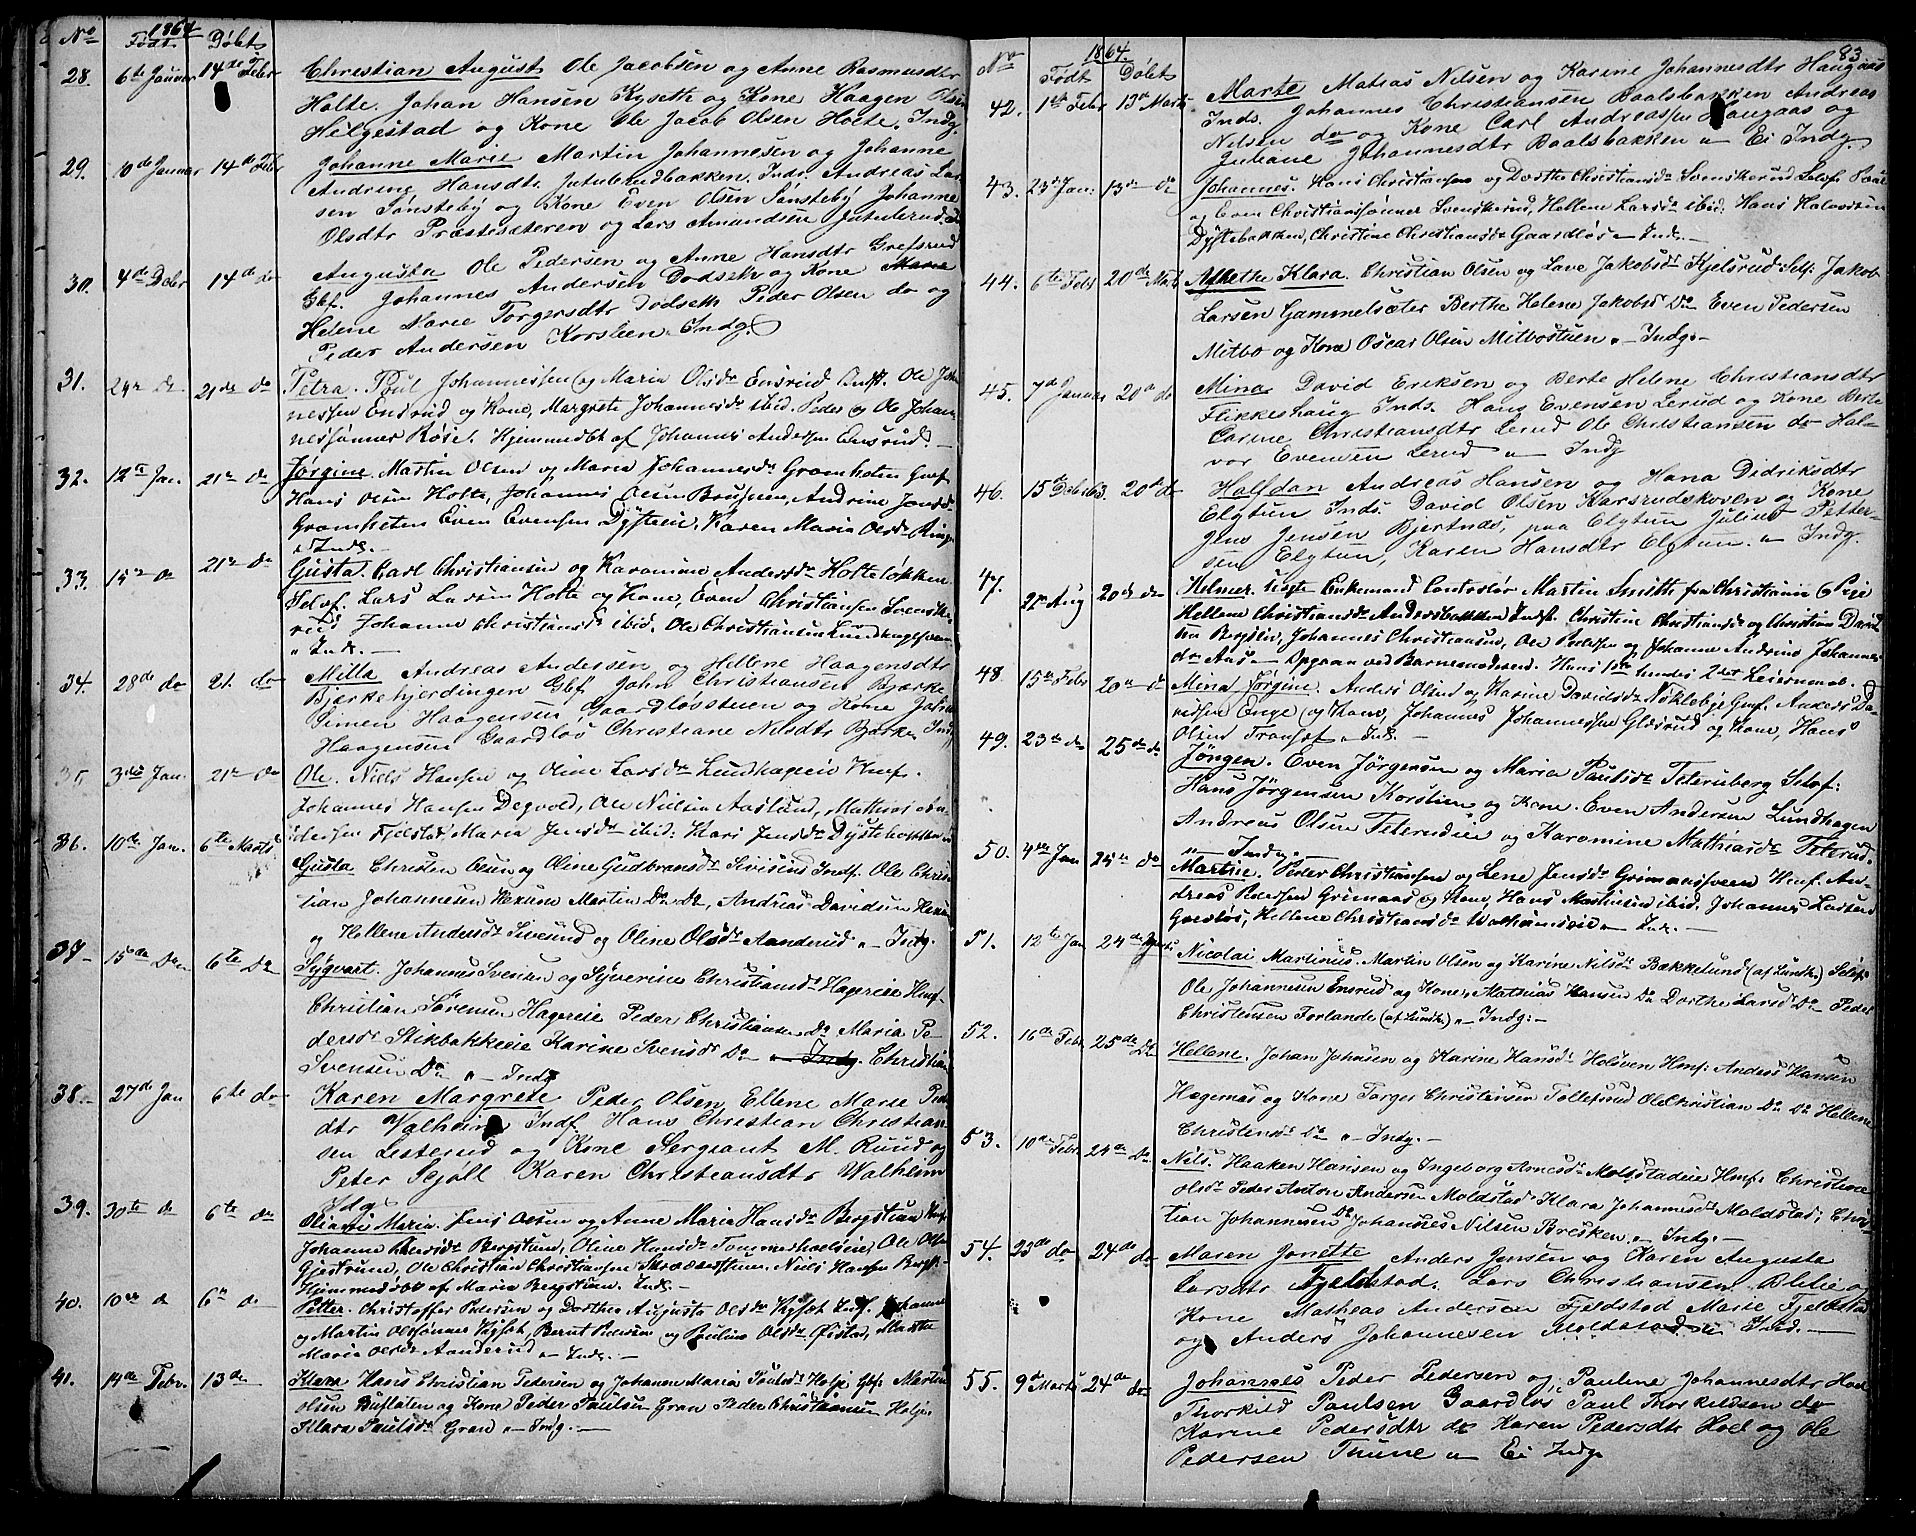 No 1864
Født Døbt
28 6te Januar 14de Febr Christian August Ole Jacobsen og Anne Rasmusdtr
Holte. Johan Hansen Kyseth og Kone Haagen Olsen
Helgestad og Kone Ole Jacob Olsen Holte. Indg.
29. 10de Januar 14de Febr Johanne Marie Martin Johannesen og Johanne
Andrine Hansdtr. Jutulrudbakken. Inds. Andreas Lar
sen Sønsteby og Kone Even Olsen Sønsteby Johanne
Olsdtr Præstesæteren og Lars Amundsen Jutulrud
30. 4de Debr 14de do Augusta Ole Pedersen og Anne Hansdtr Grefsrud
Gbf. Johannes Andersen Dodseth og Kone Marie
Helene Marie Torgersdtr Dodseth Peder Olsen do og
Peder Andersen Korslien. Indg.
31. 24de do 21de do Petra. Poul Johannessen og Maria Olsdr Ensrud Indst. Ole Johan
nessen Endrud og Kone, Margrete Johannesdr ibid. Peder og Ole Johan
nessønner Røise. Hjemmedbt af Johannes Andersen Ensrud. —
32. 12te Jan. 21de do Jørgine. Martin Olsen og Maria Johannesdr Gramheten
Hans Olsen Holte, Johannes Olsen Andrine Jensd
Gramheten Even Evensen Dysteeie, Karen Maria Olsdr
" Inds. —
33. 15de do 21de do Gusta. Carl Christiansen og Karamine Andersdr Holteløkken
Selvf. Lars Larsen Holte og Kone, Even Christiansen Svenske
rud Johanne Christiansdr ibid. Ole Christiansen Lundhagesveen
" Ind. —
34. 28de do 21. do Milla Andreas Andersen og Hellene Haagensdtr
Bjerkehjerdingen Gbf. John Christiansen Bjerke
Simen Haagensen Gaardløsstuen og Kone John
Haagensen Gaardløs Christiane Nilsdtr Bjerke Indg
35. 3die Jan. 21de do Ole. Niels Hansen og Oline Larsdr Lundhageeie Hmf.
Johannes Hansen Degvold, Ole Nielsen Aaslund, Mathias An
dersen Fjelstad, Maria Jensdr ibid: Kari Jensdr Dystebakken
36. 10de Jan. 6te Marts Gusta Christen Olsen og Oline Gudbransdr Sivesind Indf. Ole Chris
tian Johannesen Hexum Martin Do Do, Andreas Davidsen Hexum
og Hellene Andersdr Sivesind og Oline Olsdr Aanderud " Indg.
37 15de Do 6te Do Sygvart. Johannes Svensen og Syverine Christiansdr Hageeie Hmf.
Christian Sørensen Hageeie Peder Christiansen Do Maria Pe
dersdr Stikbakkeeie Karine Svensdr Do " Indg. Christian
Svensen Do " — Indg
38. 27de Jan 6te do Karen Margrete Peder Olsen, Ellene Marie Peders
dtr Walheim Indf Hans Christian Christian
sen Lesterud og Kone Sergeant M. Ruud og
Peter Sejøll Karen Christiansdtr Walheim
Idg.
39. 30te do 6te do Oliane Maria. Jens Olsen og Anne Maria Hansdr Bergstuen
Johanne Bergstuen, Oline Hansdr Tømmerholseie, Ole Olsen
Gjestrum, Ole Christian Christiansen Niels Hansen Bergst.
Hjemmedøbt af Maria Bergstuen. Inds. —
40. 10de do 6te do Petter. Christoffer Pedersen og Dorthe Augusta Olsdr Indf. Johanne
og Martin Olssønner Bernt Paulsen og Pauline Olsdr Øistad, Martha
Maria Olsdr Aanderud " — Inds. —
41. 14de Febr. 13de Klara Hans Christian Pedersen og Johanne Maria Paulsdr Holje Gbf. Martin
Olsen Buflaten og Kone Peder Paulsen Gran Peder Christiansen Holje.
Klara Paulsdr Gran " — Indg. —
No 1864. 83
Født Døbt
42. 1ste Febr 13de Marts Marte Matias Nilsen og Karine Johannesdtr Haugaas
Inds. Johannes Christiansen Baalsbakken Andreas
Nilsen do og Kone Carl Andreassen Haugaas og
Juliane Johannesdtr Baalsbakken " Ei Indg.
43. 23de Jan. 13de do Johannes. Hans Christiansen og Dorthe Christiansdr Svenskerud Selvf.
og Even Christianssønner Svenskerud, Hellene Larsdr ibid. Hans Halvorsen
Dystebakken, Christine Christiansdr Gaardløs " Inds. —
44. 6te Febr 20de Marts Agnethe Klara. Christian Olsen og Lave Jakobsdr Fjelsrud Self: Jakob
Larsen Gammelsæter Berthe Helene Jakobsd Do Even Pedersen
Mitbo og Kone Oscar Olsen Mitbostuen. " — Indg. —
45. 7de Januar 20de do Mina David Eriksen og Berte Helene Christiansdtr
Flikkeshaug Inds. Hans Evensen Lerud og Kone Berte
Carine Christiansdtr Lerud Ole Christiansen do Hal-
vor Evensen Lerud " Indg
46. 15de Debr 63. 20de do Halfdan Andreas Hansen og Hana Didriksdtr
Elgtun Inds. David Olsen Karsrudskoven og Kone
Jens Jensen Bjertnes, paa Elgtun Julius Petter-
sen Elgtun, Karen Hansdtr Elgtun. " Indg.
47. 21de Aug 20de do Helmer. uægte Enkemand Contorlør Martin Smith fra Christiania og Pige
Hellene Christiansdr Andersbakken Indst. Christine Christiansdr og Christian David
sen Bergslie, Johannes Christiansen, Ole Pedersen og Johanne Andrine Johannes
dr Aas — Opgivn ved Barnemoderen. Hans 1ste hendes 2det Leiermaal.
48. 15de Febr 20de do Mina Jørgine. Anders Olsen og Karine Davidsdr Nøklebye Gmf. Anders Da-
vidsen Enge og Kone, Johannes Johannessen Glæsrud og Kone, Hans
Olsen Transet " Inds. —
49. 23de do 25de do Jørgen. Even Jørgensen og Maria Paulsdr Teterudberg Selvf:
Hans Jørgensen Korslien og Kone. Even Andersen Lundhagen
Andreas Olsen Teterudeie og Karomine Mathiasdr Teterud.
" — Indg. —
50. 4de Jan 25de do Martine. Peder Christiansen og Lene Jensdr Grimaasveen Hmf. An-
dreas Pedersen Grimaas og Kone, Hans Martinsen ibid, Johannes Larsen
Gaardløs, Hellene Christiansdr Walhaimseie " Inds. —
51. 12te Jan 24de Marts Nicolai Martinus. Martin Olsen og Karine Nilsdr Bækkelund (af Lundh.) Selvf
Ole Johannesen Ensrud og Kone, Mathias Hansen Do Dorthe Larsd Do Peder
Christensen Forlande (af Lundh.) " — Indg. —
52. 16de Febr. 25de Do Hellene. Johan Johnsen og Karine Hansdr Holsveen Hmf: Anders Hansen
Hægernæs og Kone Torger Christensen Tollefsrud Ole Christian Do Do Hellene
Christensdr Do " — Indg. —
53. 10de Febr 24de Do Nils. Haaken Hansen og Ingeborg Arnesdr Moldstadeie Hmf: Christine
Olsdr Peder Anton Andersen Moldstad Klara Johannesdr Moldstad, Chris-
tian Johannesen Do Johannes Nilsen Bresken. " — Indg. —
54. 23de do 24de do Maren Jonette Anders Jensen og Karen Auguste
Larsdtr Fjeldstad. Lars Christiansen Blilie og
Kone Mathias Andersen Fjeldstad Marie Fjeldstad
og Anders Johannesen Moldstad Ind. —
55. 9de Marts 24de do Johannes Peder Pedersen og Pauline Johannesdtr Hoel
Thorkild Paulsen Gaardløs Paul Thorkildsen do
Karine Pedersdtr do Karen Pedersdtr Hoel og Ole
Pedersen Thune " Ei Indg